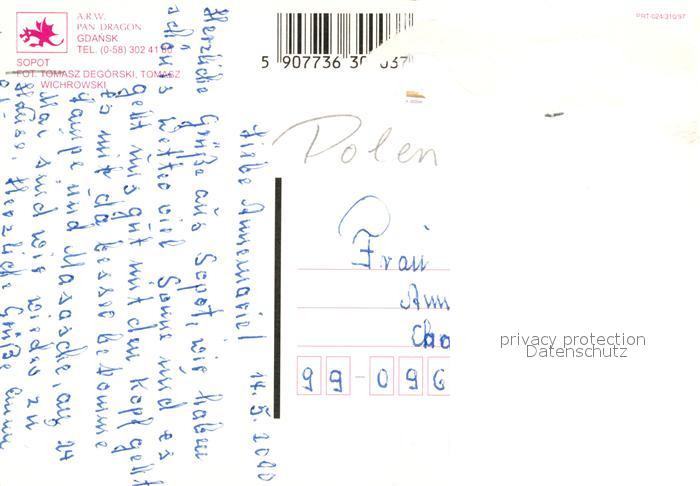 A.R.W.
PAN DRAGON
GDAŃSK
TEL. (0-58) 302 41 60
SOPOT
FOT. TOMASZ DEGÓRSKI, TOMASZ
WICHROWSKI
5 907736 30 037
PRT-024/310/97
Polen
Liebe Annemarie! 14.5.2000
Herzliche Grüße aus Sopot, wir haben
schönes Wetter viel Sonne und es
geht uns gut mit dem Kopf geht
es mir da besser bekomme
Lampe und Massasche, am 24
Mai sind wir wieder zu
Hause. Herzliche Grüße
Frau
Ann
Cha
99-096
privacy protection
Datenschutz